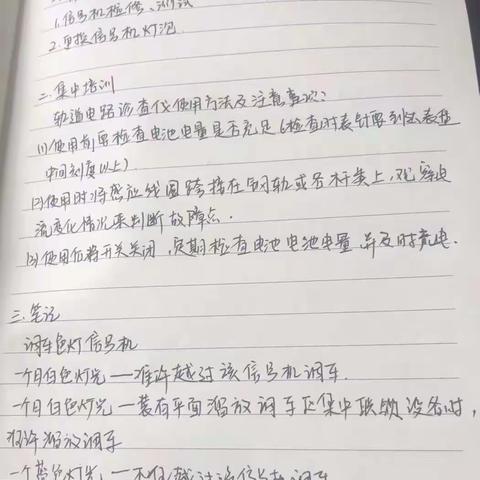 1.信号机检修、测试
2.更换信号机灯泡
二.集中培训
轨道电路诊查仪使用方法及注意事项?
(1)使用前要检查电池电量是否充足(检查时表针要到达表盘
中间刻度以上)
(2)使用时将感应线圈跨接在钢轨或各杆类上,观察电
流变化情况来判断故障点.
(3)使用后将开关关闭,定期检查电池电池电量 并及时充电.
三.笔记
调车色灯信号机
一个月白色灯光—准许越过该信号机调车.
一个月白色灯光—装有平面溜放调车区集中联锁设备时,
准许溜放调车
一个蓝色灯光—不准越过该信号机调车